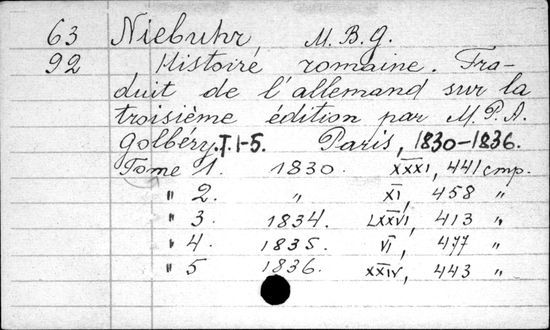 63 Niebuhr M.B.G.
92 Histoiré romaine. Tra-
duit de l'allemand sur la
troisième édition par M.P.A.
Golbéry. T. 1-5. Paris, 1830-1836.
Tome 1. 1830. XXXI, 441 cmp.
" 2. " XI, 458 "
" 3. 1834. LXXVI, 413 "
" 4. 1835. VI, 477 "
" 5 1836. XXIV, 443 "